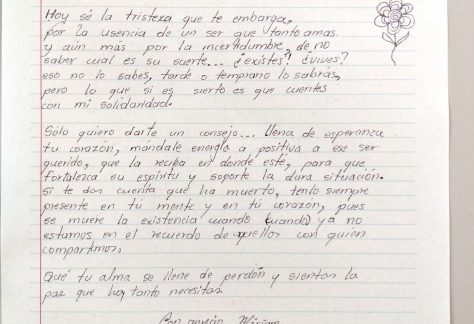 Hoy sé la tristeza que te embarga,
por la usencia de un ser que tanto amas
y aún más por la incertidumbre, de no
saber cual es su suerte... ¿existes? ¿vives?
eso no lo sabes, tarde o temprano lo sabrás,
pero lo que si es sierto es que cuentes
con mi solidaridad.
Sólo quiero darte un consejo... llena de esperanza
tu corazón, mándale energía a positiva a ese ser
querido, que la reciba en donde esté, para que
fortalezca su espíritu y soporte la dura situación.
si te dan cuenta que ha muerto, tenlo siempre
presente en tú mente y en tú corazón, pues
se muere la existencia cuando (cuando) yá no
estamos en el recuerdo de aquellos con quien
compartimos.
Qué tu alma se llene de perdón y sientas la
paz que hoy tanto necesitas.
Con aprecio